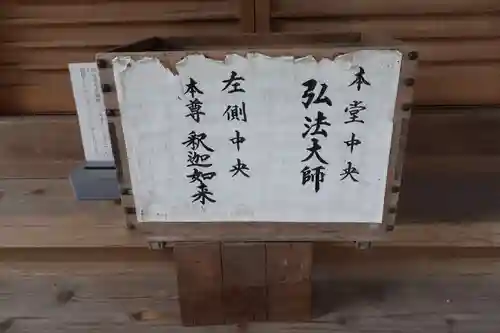 本堂中央
弘法大師
左側中央
本尊釈迦如来